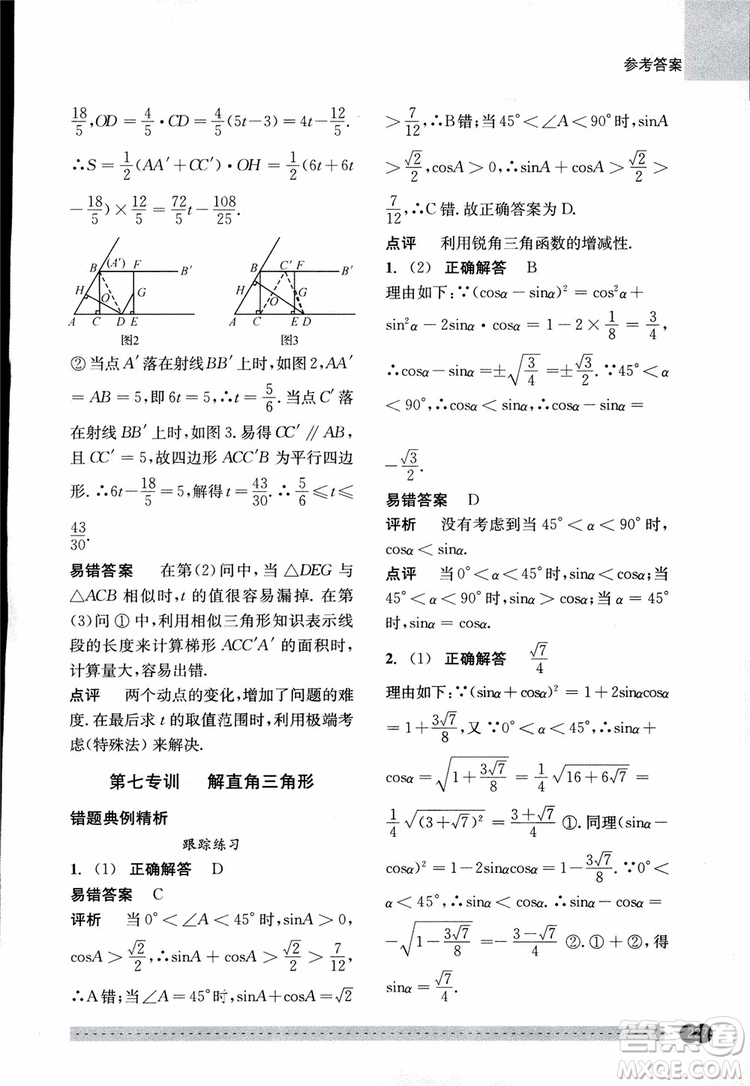 参考答案
18/5,OD=4/5·CD=4/5(5t-3)=4t-12/5.
∴S=1/2(AA′+CC′)·OH=1/2(6t+6t
-18/5)×12/5=72/5t-108/25.
B (A′) F B′
H O G
A C D E
图2
B C′ F B′
H O G
A C E D
图3
② 当点A′落在射线BB′上时,如图2,AA′
=AB=5,即6t=5,∴t=5/6.当点C′落
在射线BB′上时,如图3.易得CC′∥AB,
且CC′=5,故四边形ACC′B为平行四边
形.∴6t-18/5=5,解得t=43/30.∴5/6≤t≤
43/30.
易错答案 在第(2)问中,当△DEG与
△ACB相似时,t的值很容易漏掉.在第
(3)问①中,利用相似三角形知识表示线
段的长度来计算梯形ACC′A′的面积时,
计算量大,容易出错.
点评 两个动点的变化,增加了问题的难
度.在最后求t的取值范围时,利用极端考
虑(特殊法)来解决.
第七专训 解直角三角形
错题典例精析
跟踪练习
1.(1) 正确解答 D
易错答案 C
评析 当0°<∠A<45°时,sinA>0,
cosA>√2/2,∴sinA+cosA>√2/2>7/12,
∴A错;当∠A=45°时,sinA+cosA=√2
>7/12,∴B错;当45°<∠A<90°时,sinA
>√2/2,cosA>0,∴sinA+cosA>√2/2>
7/12,∴C错.故正确答案为D.
点评 利用锐角三角函数的增减性.
1.(2) 正确解答 B
理由如下:∵(cosα-sinα)²=cos²α+
sin²α-2cosα·sinα=1-2×1/8=3/4,
∴cosα-sinα=±√(3/4)=±√3/2.∵45°<α
<90°,∴cosα<sinα.∴cosα-sinα=
-√3/2.
易错答案 D
评析 没有考虑到当45°<α<90°时,
cosα<sinα.
点评 当0°<α<45°时,sinα<cosα;当
45°<α<90°时,sinα>cosα;当α=45°
时,sinα=cosα.
2.(1) 正确解答 √7/4
理由如下:∵(sinα+cosα)²=1+2sinαcosα
=1+3√7/8,又∵0°<α<45°,∴sinα+
cosα=√(1+3√7/8)=√((16+6√7)/16)=
1/4√((3+√7)²)=(3+√7)/4①.同理(sinα-
cosα)²=1-2sinαcosα=1-3√7/8.∵0°<α
<45°,∴sinα<cosα.∴sinα-cosα=
-√(1-3√7/8)=-(3-√7)/4②.①+②,得
sinα=√7/4.
答案圈